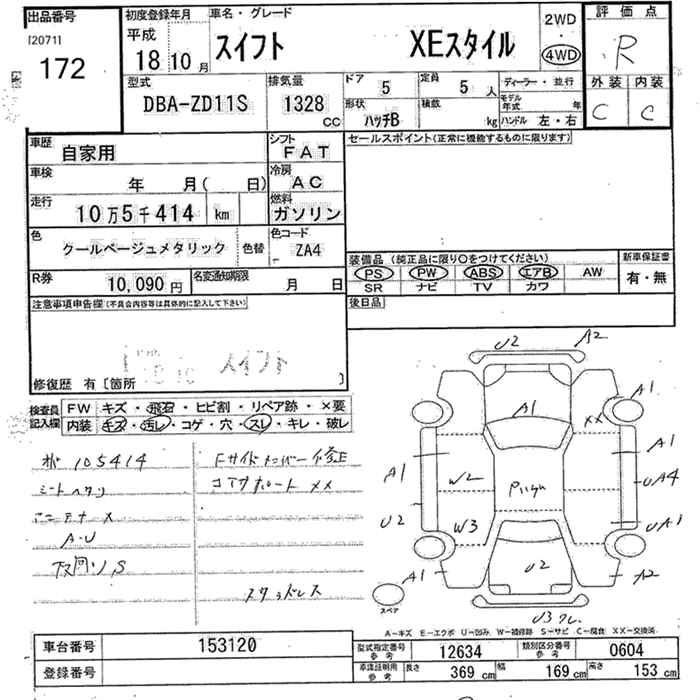 出品番号 初度登録年月 車名・グレード 2WD 評価点
[2071] 平成 スイフト XEスタイル 4WD R
172 18 10 月
型式 排気量 ドア 5 定員 5 人 ディーラー・並行 外装 内装
DBA-ZD11S 1328 CC 形状 ハッチB 積数 kg モデル年式 年 C C
ハンドル 左・右
車歴 自家用 シフト FAT セールスポイント(正常に機能するものに限ります)
車検 年 月( 日) 冷房 AC
走行 10万5千414 km 燃料 ガソリン
色 クールベージュメタリック 色替 色コード ZA4 装備品 (純正品に限り〇をつけてください) 新車保証書
PS PW ABS エアB AW 有・無
SR ナビ TV カワ
R券 10,090 円 名変通知期限 月 日 後日品
注意事項申告欄(不具合内容等は具体的に記入して下さい)
スイフト
修復歴 有〔箇所 〕
検査員 FW キズ・飛石・ヒビ割・リペア跡・×要
記入欄 内装 キズ・汚レ・コゲ・穴・スレ・キレ・破レ
105414 Fサイドメンバー修正
シートヘタリ コアサポート XX
アンテナ X
A・U
下回り S
スタッドレス
U2 A2
A1 A1
XX
A1 W2 A1
UA4
U2 W3 UA1
A1 U2 A2
スペア
U3
A-キズ E-エクボ U-凹み W-補修跡 S-サビ C-腐食 XX-交換済
車台番号 153120 型式指定番号 参考 12634 類別区分番号 参考 0604
登録番号 車庫証明用 参考 長さ 369 cm 幅 169 cm 高さ 153 cm